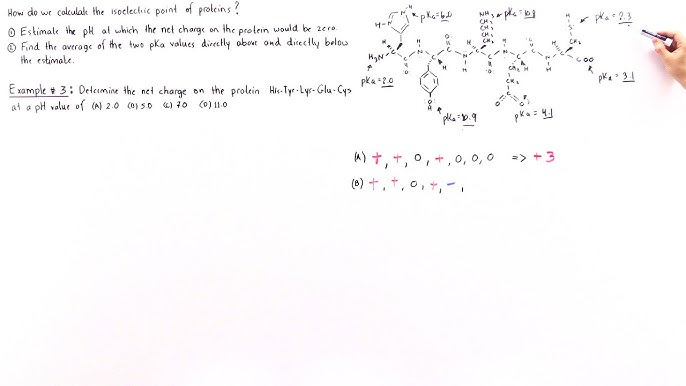 How do we calculate the isoelectric point of proteins?
① Estimate the pH at which the net charge on the protein would be zero.
② Find the average of the two pKa values directly above and directly below
the estimate.
Example #3: Determine the net charge on the protein His-Tyr-Lys-Glu-Cys
at a pH value of (A) 2.0 (B) 5.0 (C) 7.0 (D) 11.0
pKa=6.0
pKa=10.8
pKa=2.3
pKa=2.0
pKa=10.9
pKa=4.1
pKa=3.1
(A) +, +, 0, +, 0, 0, 0 => +3
(B) +, +, 0, +, -,